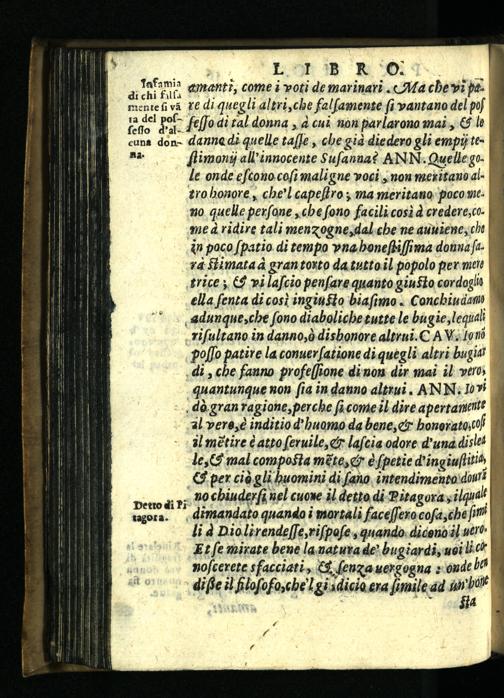 LIBRO.
Infamia
di chi falsa
mente si vā
ta del pos-
sesso d'al-
cuna don-
na.
amanti, come i voti de marinari. Ma che vi pa-
re di quegli altri, che falsamente si vantano del pos
sesso di tal donna, à cui non parlarono mai, & le
danno di quelle tasse, che già diedero gli empij te-
stimonij all'innocente Susanna? ANN. Quelle go-
le onde escono così maligne voci, non meritano al-
tro honore, che'l capestro; ma meritano poco me-
no quelle persone, che sono facili così à credere, co-
me à ridire tali menzogne, dal che ne auuiene, che
in poco spatio di tempo vna honestissima donna sa-
rà stimata à gran torto da tutto il popolo per mere
trice; & vi lascio pensare quanto giusto cordoglio
ella senta di così ingiusto biasimo. Conchiudamo
adunque, che sono diaboliche tutte le bugie, lequali
risultano in danno, ò dishonore altrui. CAV. Io nō
posso patire la conuersatione di quegli altri bugiar
di, che fanno professione di non dir mai il vero,
quantunque non sia in danno altrui. ANN. Io vi
dò gran ragione, perche si come il dire apertamente
il vero, è inditio d'huomo da bene, & honorato, così
il mētire è atto seruile, & lascia odore d'una dislea
le, & mal composta mēte, & è spetie d'ingiustitia,
& per ciò gli huomini di sano intendimento dourā
no chiudersi nel cuore il detto di Pitagora, ilquale
Detto di Pi
tagora.
dimandato quando i mortali facessero cosa, che simi
li à Dio li rendesse, rispose, quando dicono il uero.
Et se mirate bene la natura de' bugiardi, uoi li co-
noscerete sfacciati, & senza uergogna: onde ben
disse il filosofo, che'l giudicio era simile ad un'hone
sta